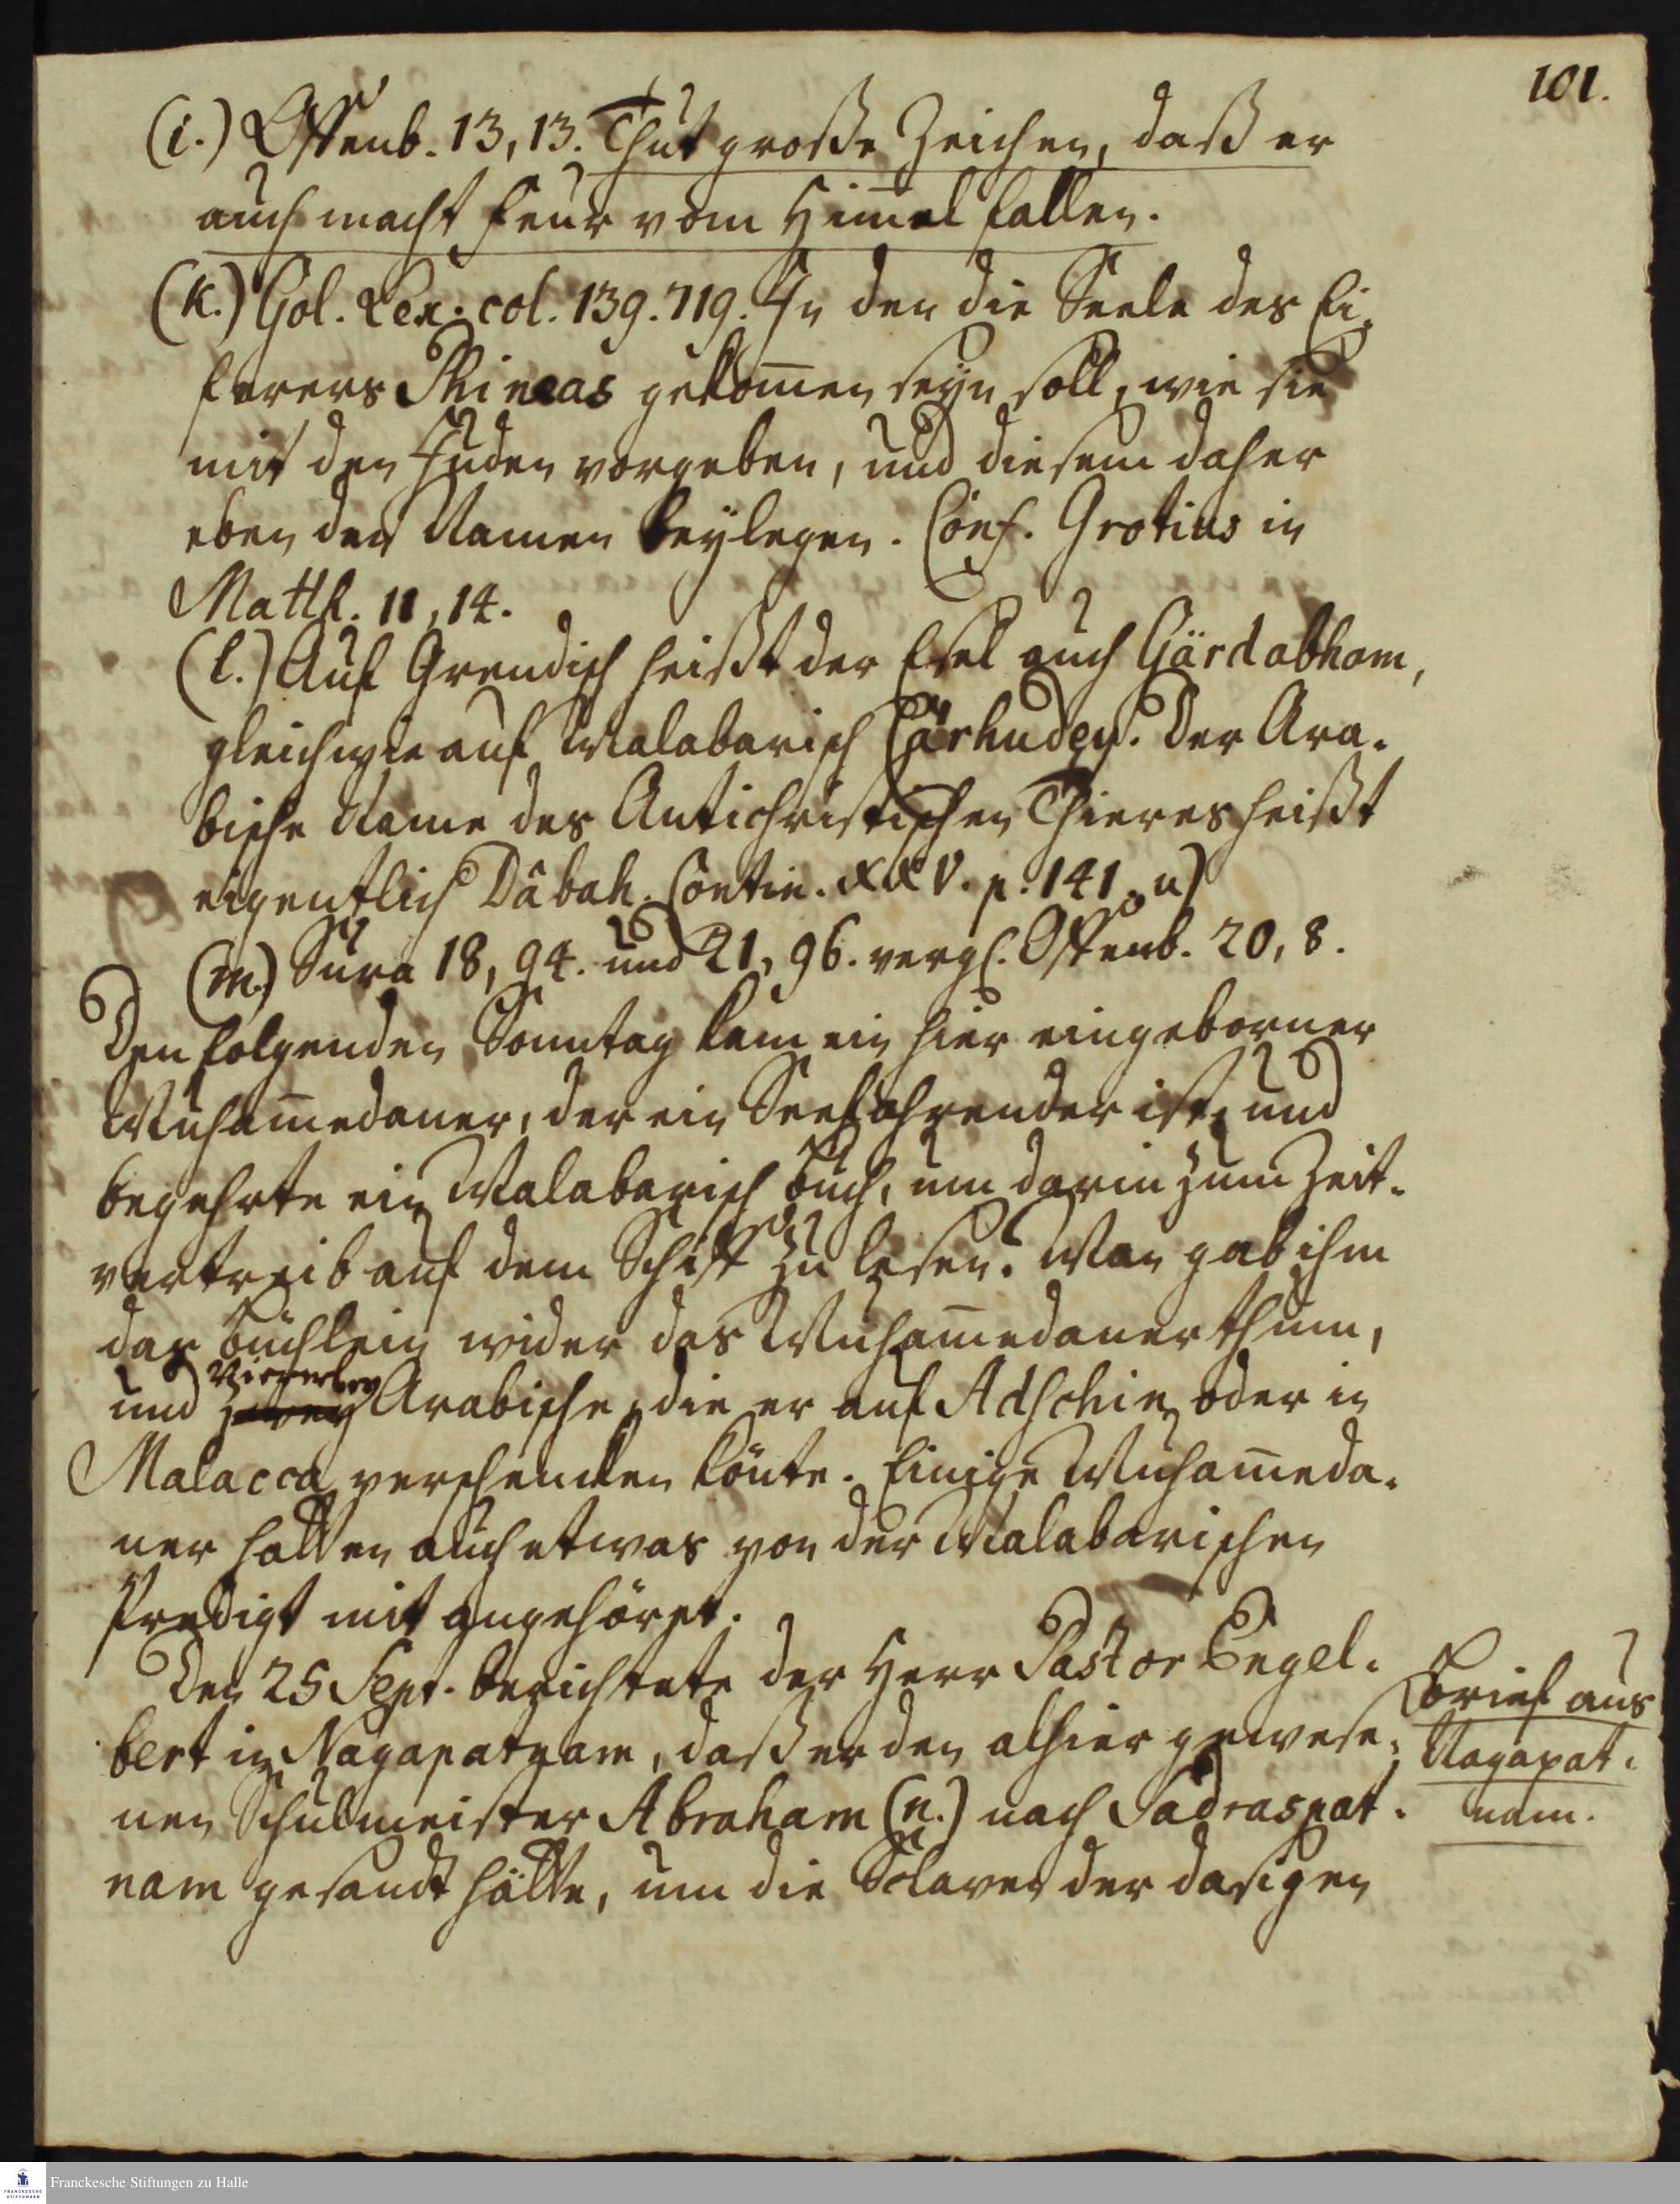 101.
(i.) Offenb. 13, 13. Thut große Zeichen, daß er
auch macht Feur vom Himel fallen.
(k.) Gol. Lex. col. 139. 719. In den die Seele des Ei-
ferers Phineas gekomen seyn soll, wie sie
mit den Juden vorgeben, und diesem daher
eben den Namen beylegen. Conf. Grotius in
Matth. 11, 14.
(l.) Auf Grendisch heißt der Esel auch Gärdabham,
gleichwie auf Malabarisch Cärhudey. Der Ara-
bische Name des Antichristischen Thieres heißt
eigentlich Dâbah. Contin. XXV. p. 141. u)
(m.) Sura 18, 94. und 21, 96. vergl. Offenb. 20, 8.
Den folgenden Sonntag kam ein hier eingeborner
Muhamedaner, der ein Seefahrender ist, und
begehrte ein Malabarisch Buch, um darin zum Zeit-
vertreib auf dem Schiff zu lesen. Man gab ihm
das Büchlein wider das Muhamedanerthum,
und zwey Viererley Arabische, die er auf Adschin oder in
Malacca verschencken könte. Einige Muhameda-
ner hatten auch etwas von der Malabarischen
Predigt mit angehöret.
Den 25 Sept. berichtete der Herr Pastor Engel-
bert in Nagapatnam, daß er den alhier gewese-
nen Schulmeister Abraham (n.) nach Sadraspat-
nam gesandt hätte, um die Sclaven der dasigen
Brief aus
Nagapat-
nam.
Franckesche Stiftungen zu Halle